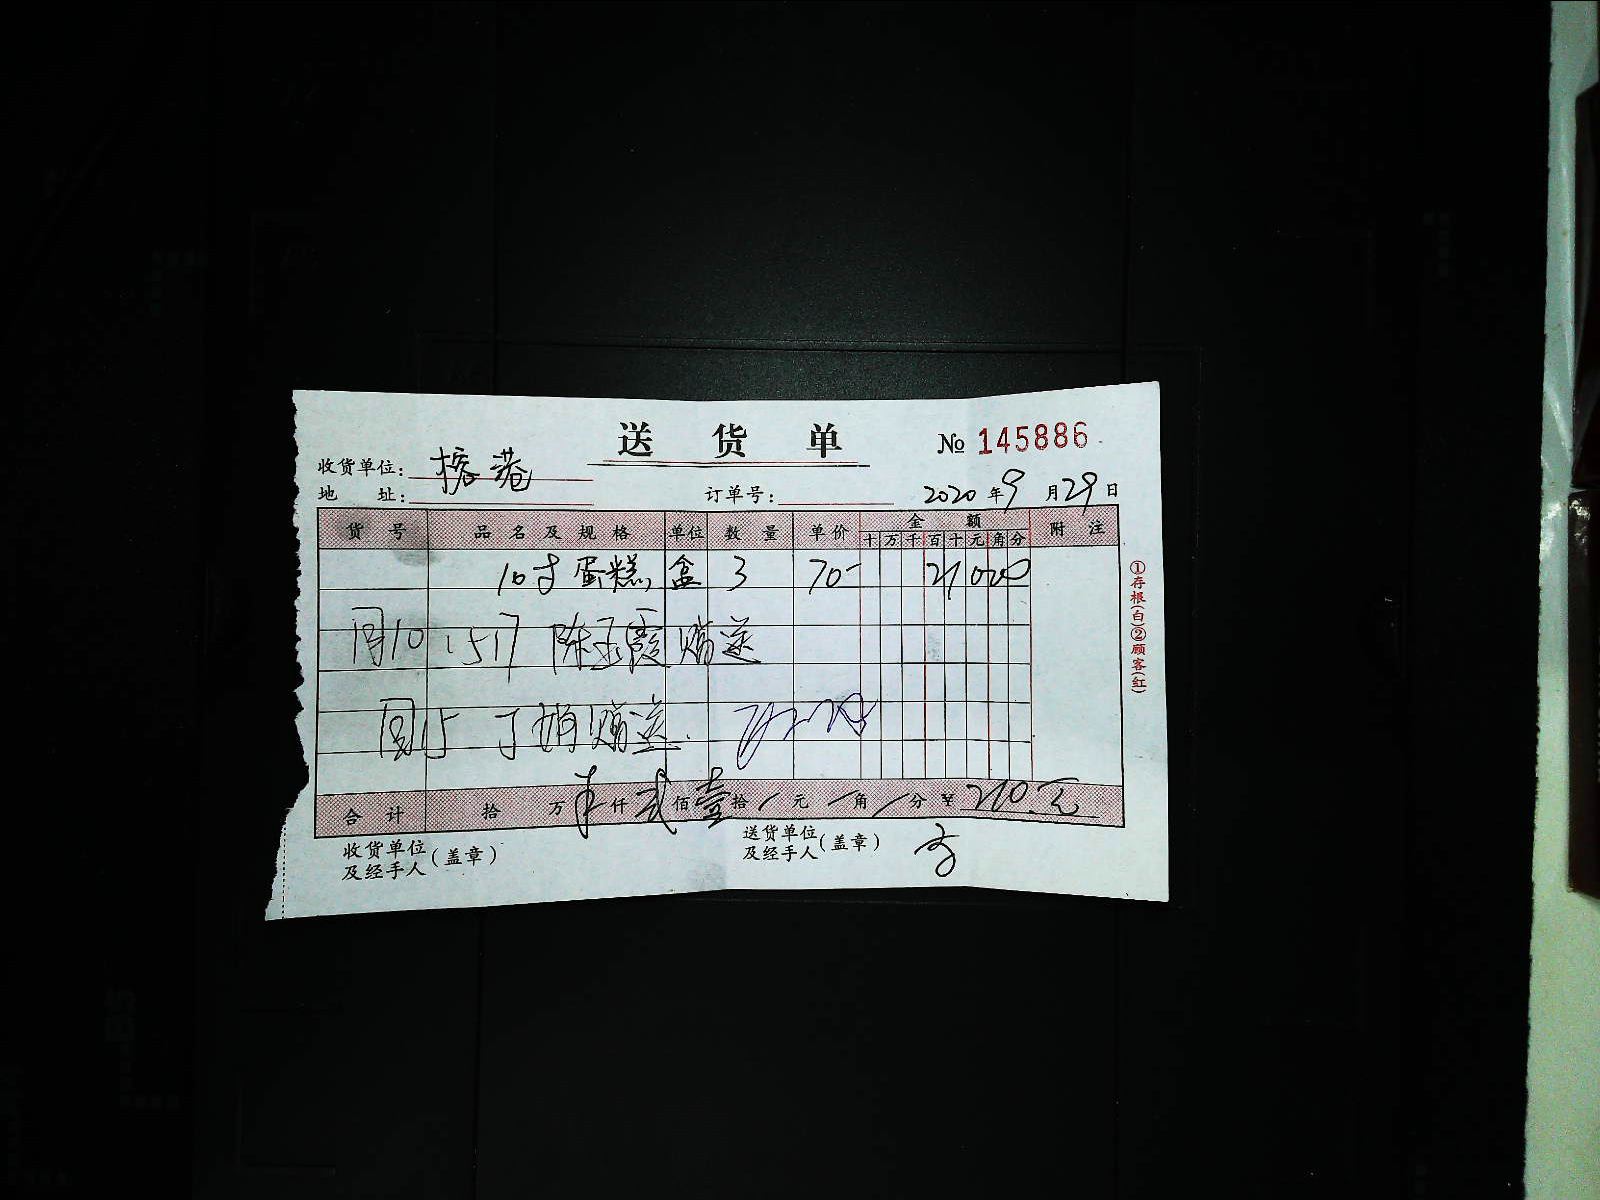 送货单
№ 145886
收货单位: 榕巷
地 址: 订单号: 2020年9月29日
货号 品名及规格 单位 数量 单价 金额 附注
十万千百十元角分
10寸蛋糕 盒 3 70- 21000
10 1517 陈玉霞赠送
丁娟赠送
合计 拾 万 仟 贰佰 壹拾 / 元 / 角 / 分 ¥ 210.元
收货单位及经手人(盖章)
送货单位及经手人(盖章)
①存根(白)②顾客(红)